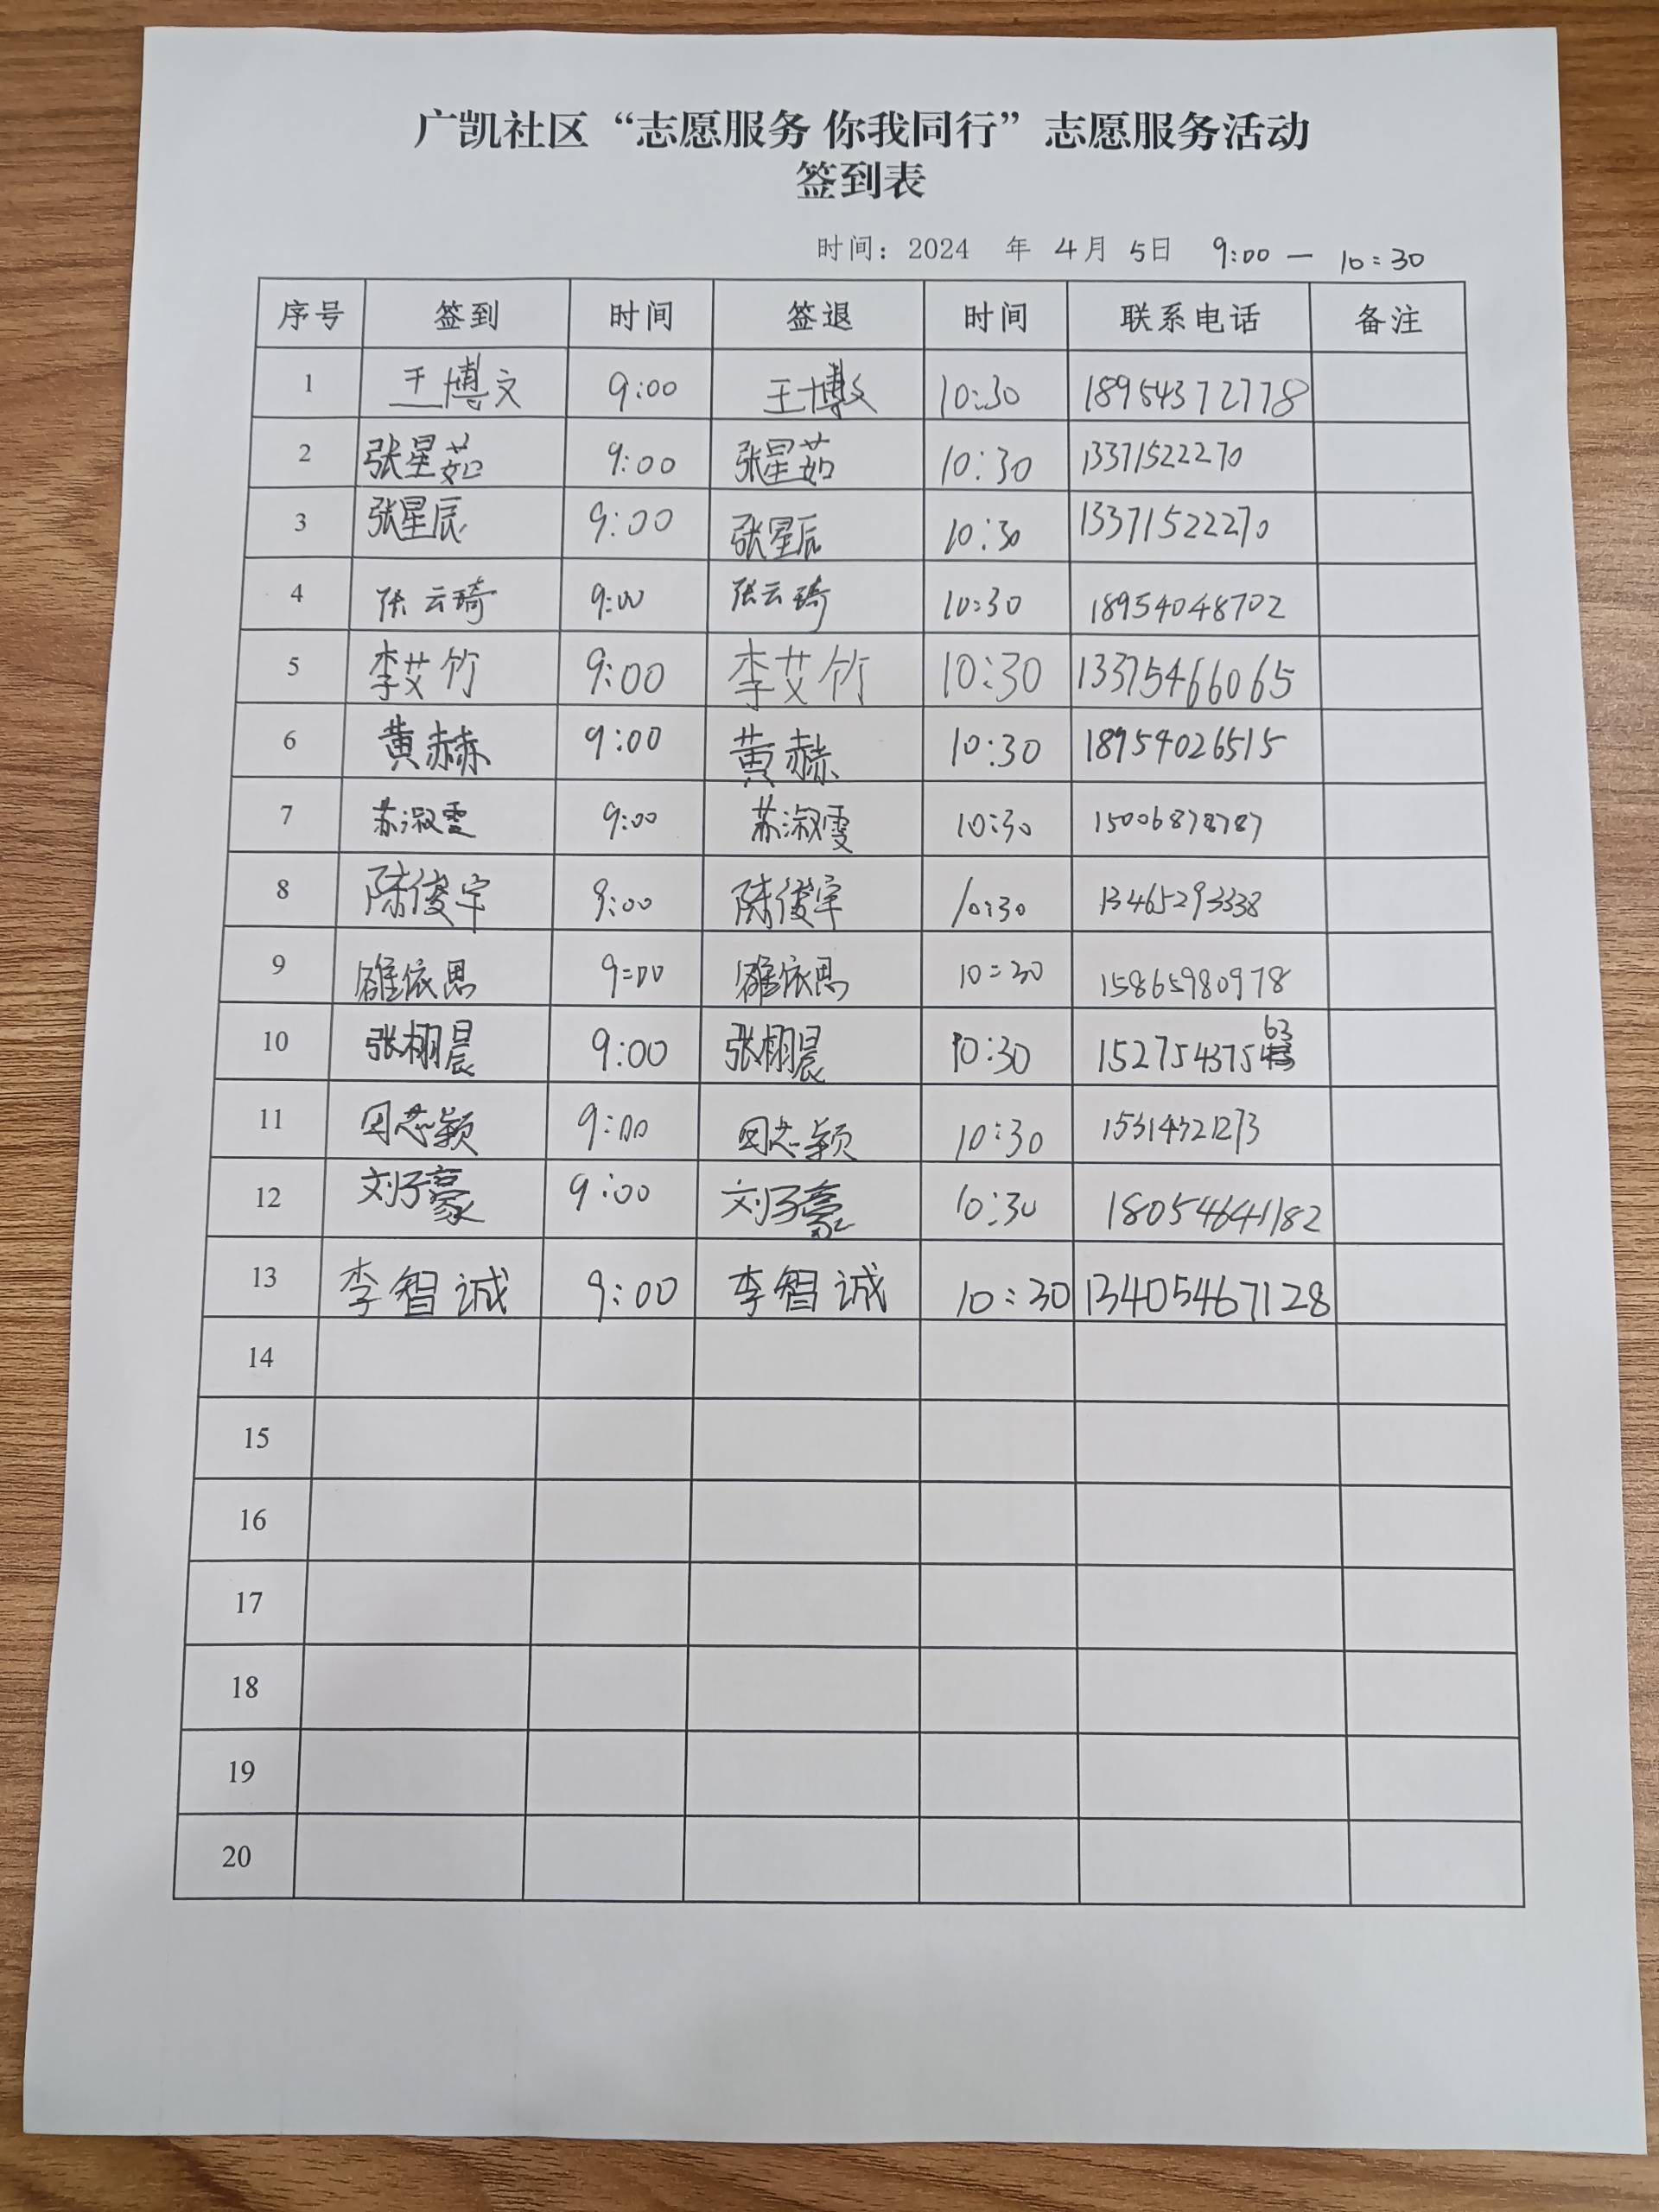 广凯社区“志愿服务 你我同行”志愿服务活动
签到表
时间：2024 年 4月 5日 9:00 — 10:30
序号 签到 时间 签退 时间 联系电话 备注
1 王博文 9:00 王博文 10:30 18954372778
2 张星茹 9:00 张星茹 10:30 13371522270
3 张星辰 9:00 张星辰 10:30 13371522270
4 张云琦 9:00 张云琦 10:30 18954048702
5 李艾竹 9:00 李艾竹 10:30 13375466065
6 黄赫 9:00 黄赫 10:30 18954026515
7 苏淑雯 9:00 苏淑雯 10:30 15006878787
8 陈俊宇 9:00 陈俊宇 10:30 13465293338
9 9:00 10:30 15865980978
10 张栩晨 9:00 张栩晨 10:30 15275437563
11 田芯颖 9:00 田芯颖 10:30 15314321273
12 刘子豪 9:00 刘子豪 10:30 18054641182
13 李智诚 9:00 李智诚 10:30 13405467128
14
15
16
17
18
19
20